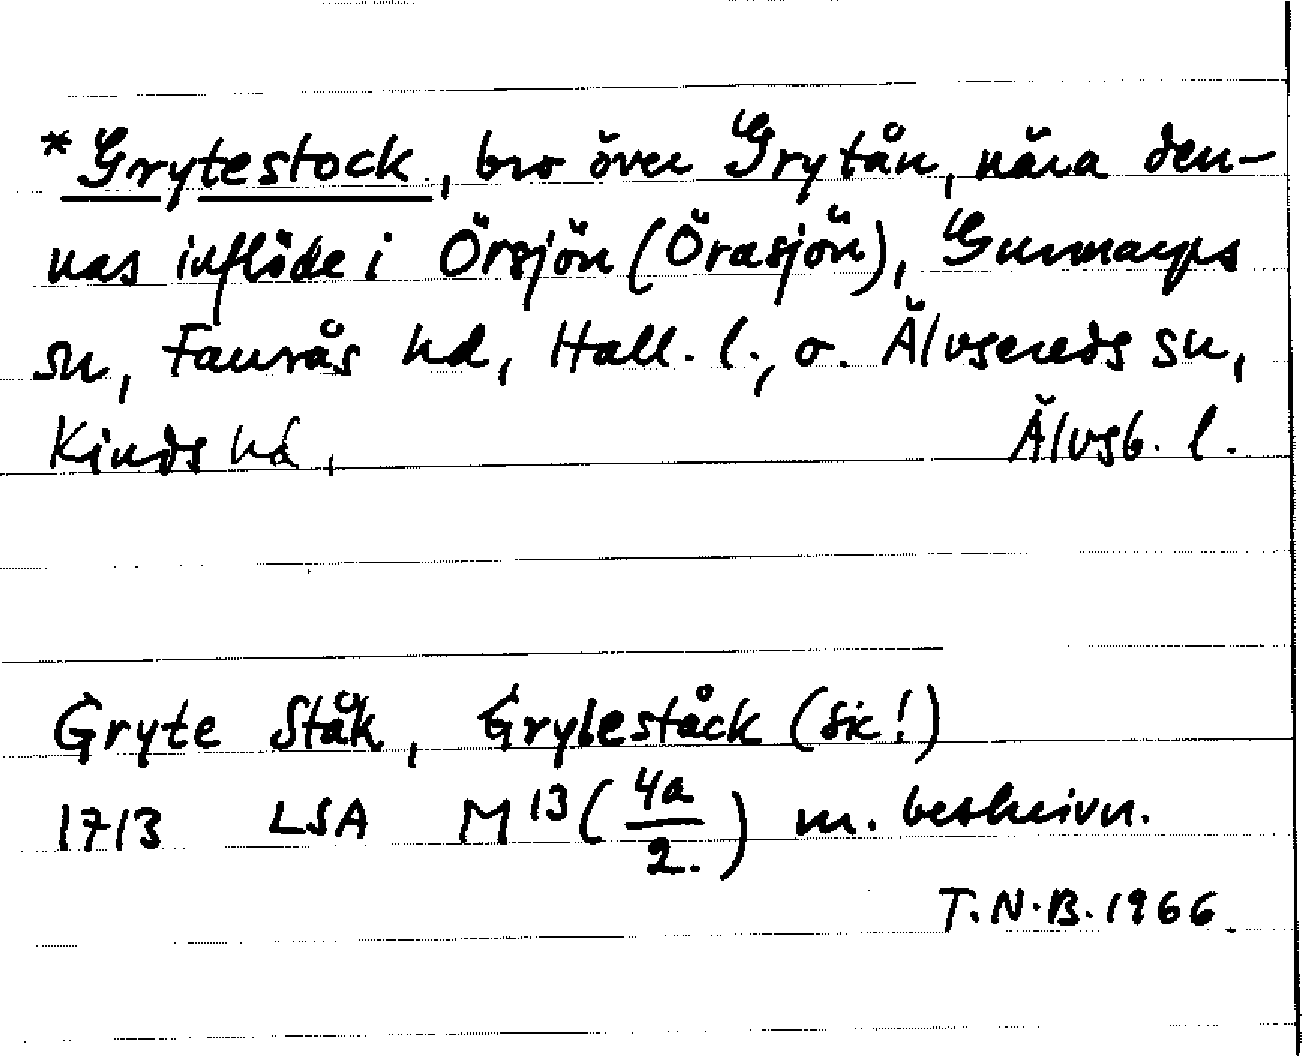 *Grytestock, bro över Grytån, nära den-
nas inflöde i Örsjön (Örasjön), Gunnarps
sn, Faurås hd, Hall. l., o. Älvsereds sn,
Kinds hd, Älvsb. l.
Gryte Ståk, Gryleståck (sic!)
1713 LSA M 13 (4a/2.) m. beskrivn.
T.N.B. 1966.